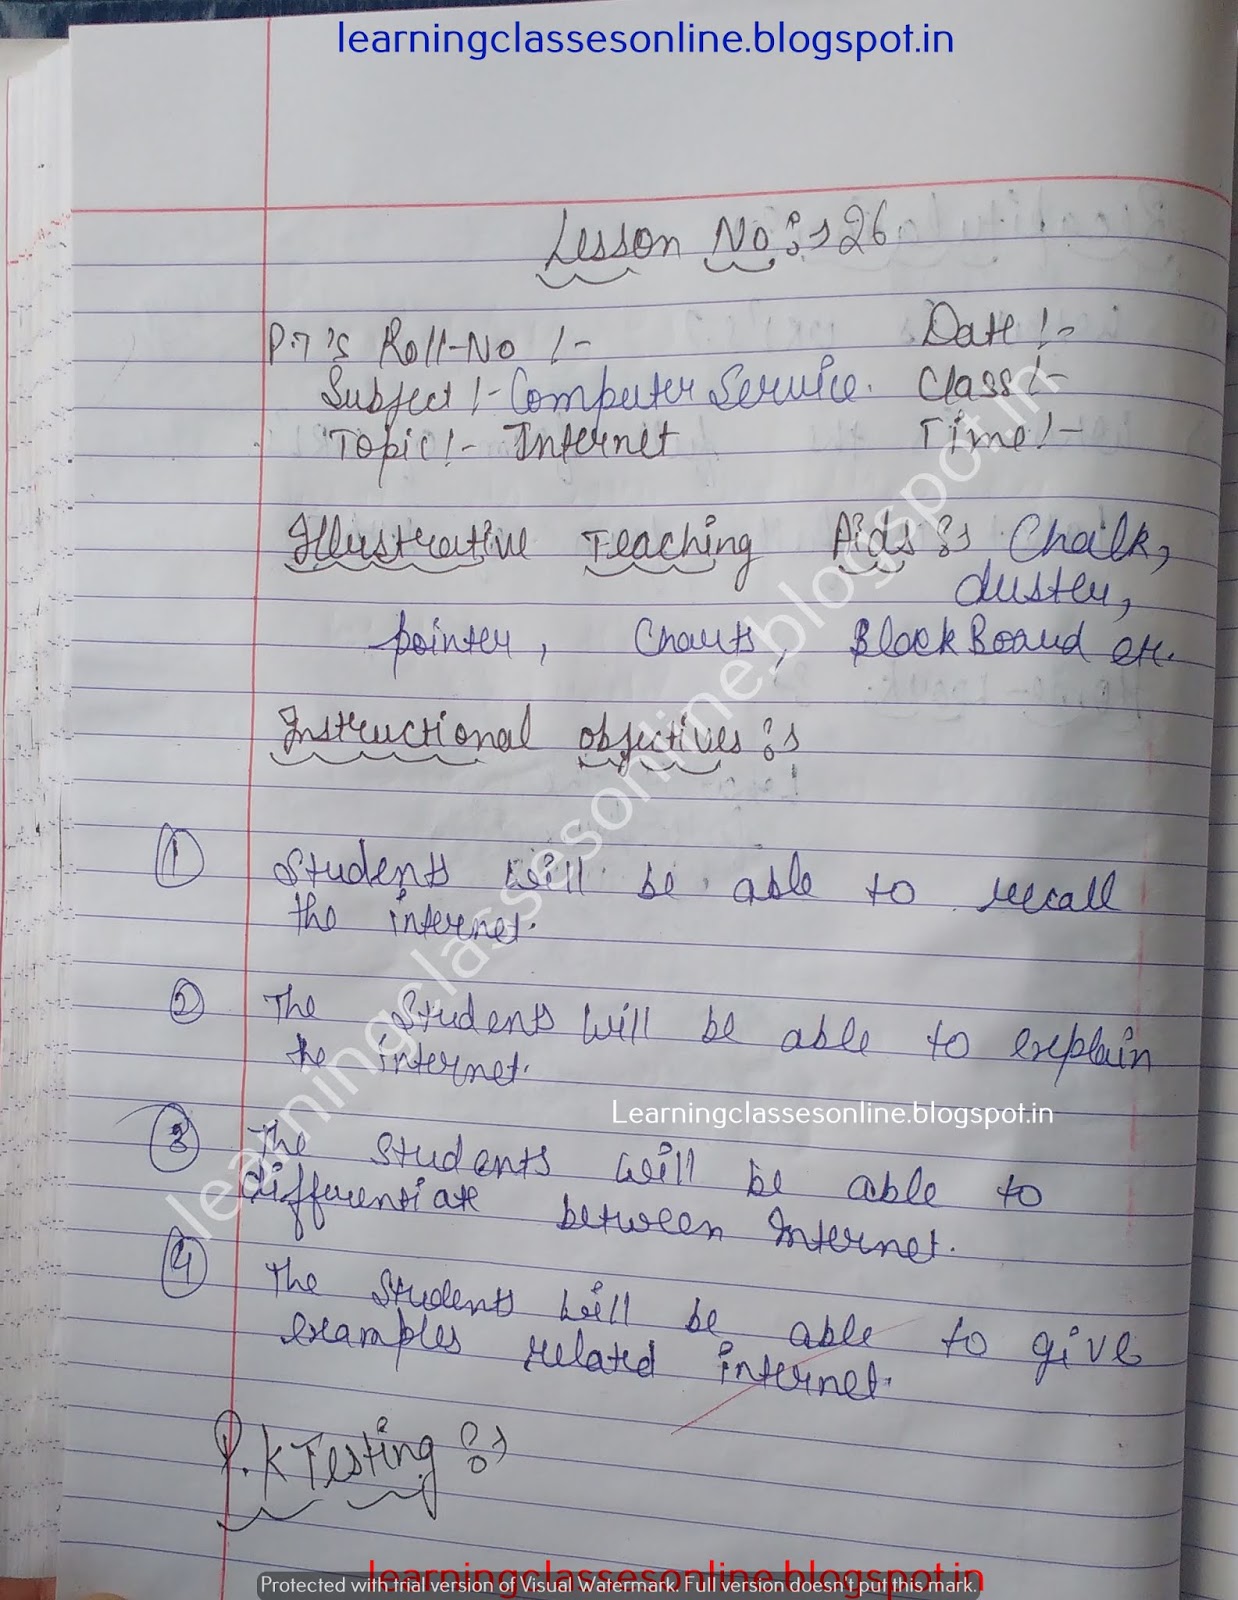 learningclassesonline.blogspot.in
Lesson No:- 26
P.T's Roll-No :- Date :-
Subject :- Computer Service. Class :-
Topic :- Internet Time :-
Illustrative Teaching Aids :- Chalk,
duster,
pointer, Charts, BlackBoard etc.
Instructional objectives :-
1 Students will be able to recall
the internet.
2 The students will be able to explain
the internet.
Learningclassesonline.blogspot.in
3 The students will be able to
differentiate between Internet.
4 The students will be able to give
examples related internet.
P.K Testing :-
learningclassesonline.blogspot.in
learningclassesonline.blogspot.in
Protected with trial version of Visual Watermark. Full version doesn't put this mark.